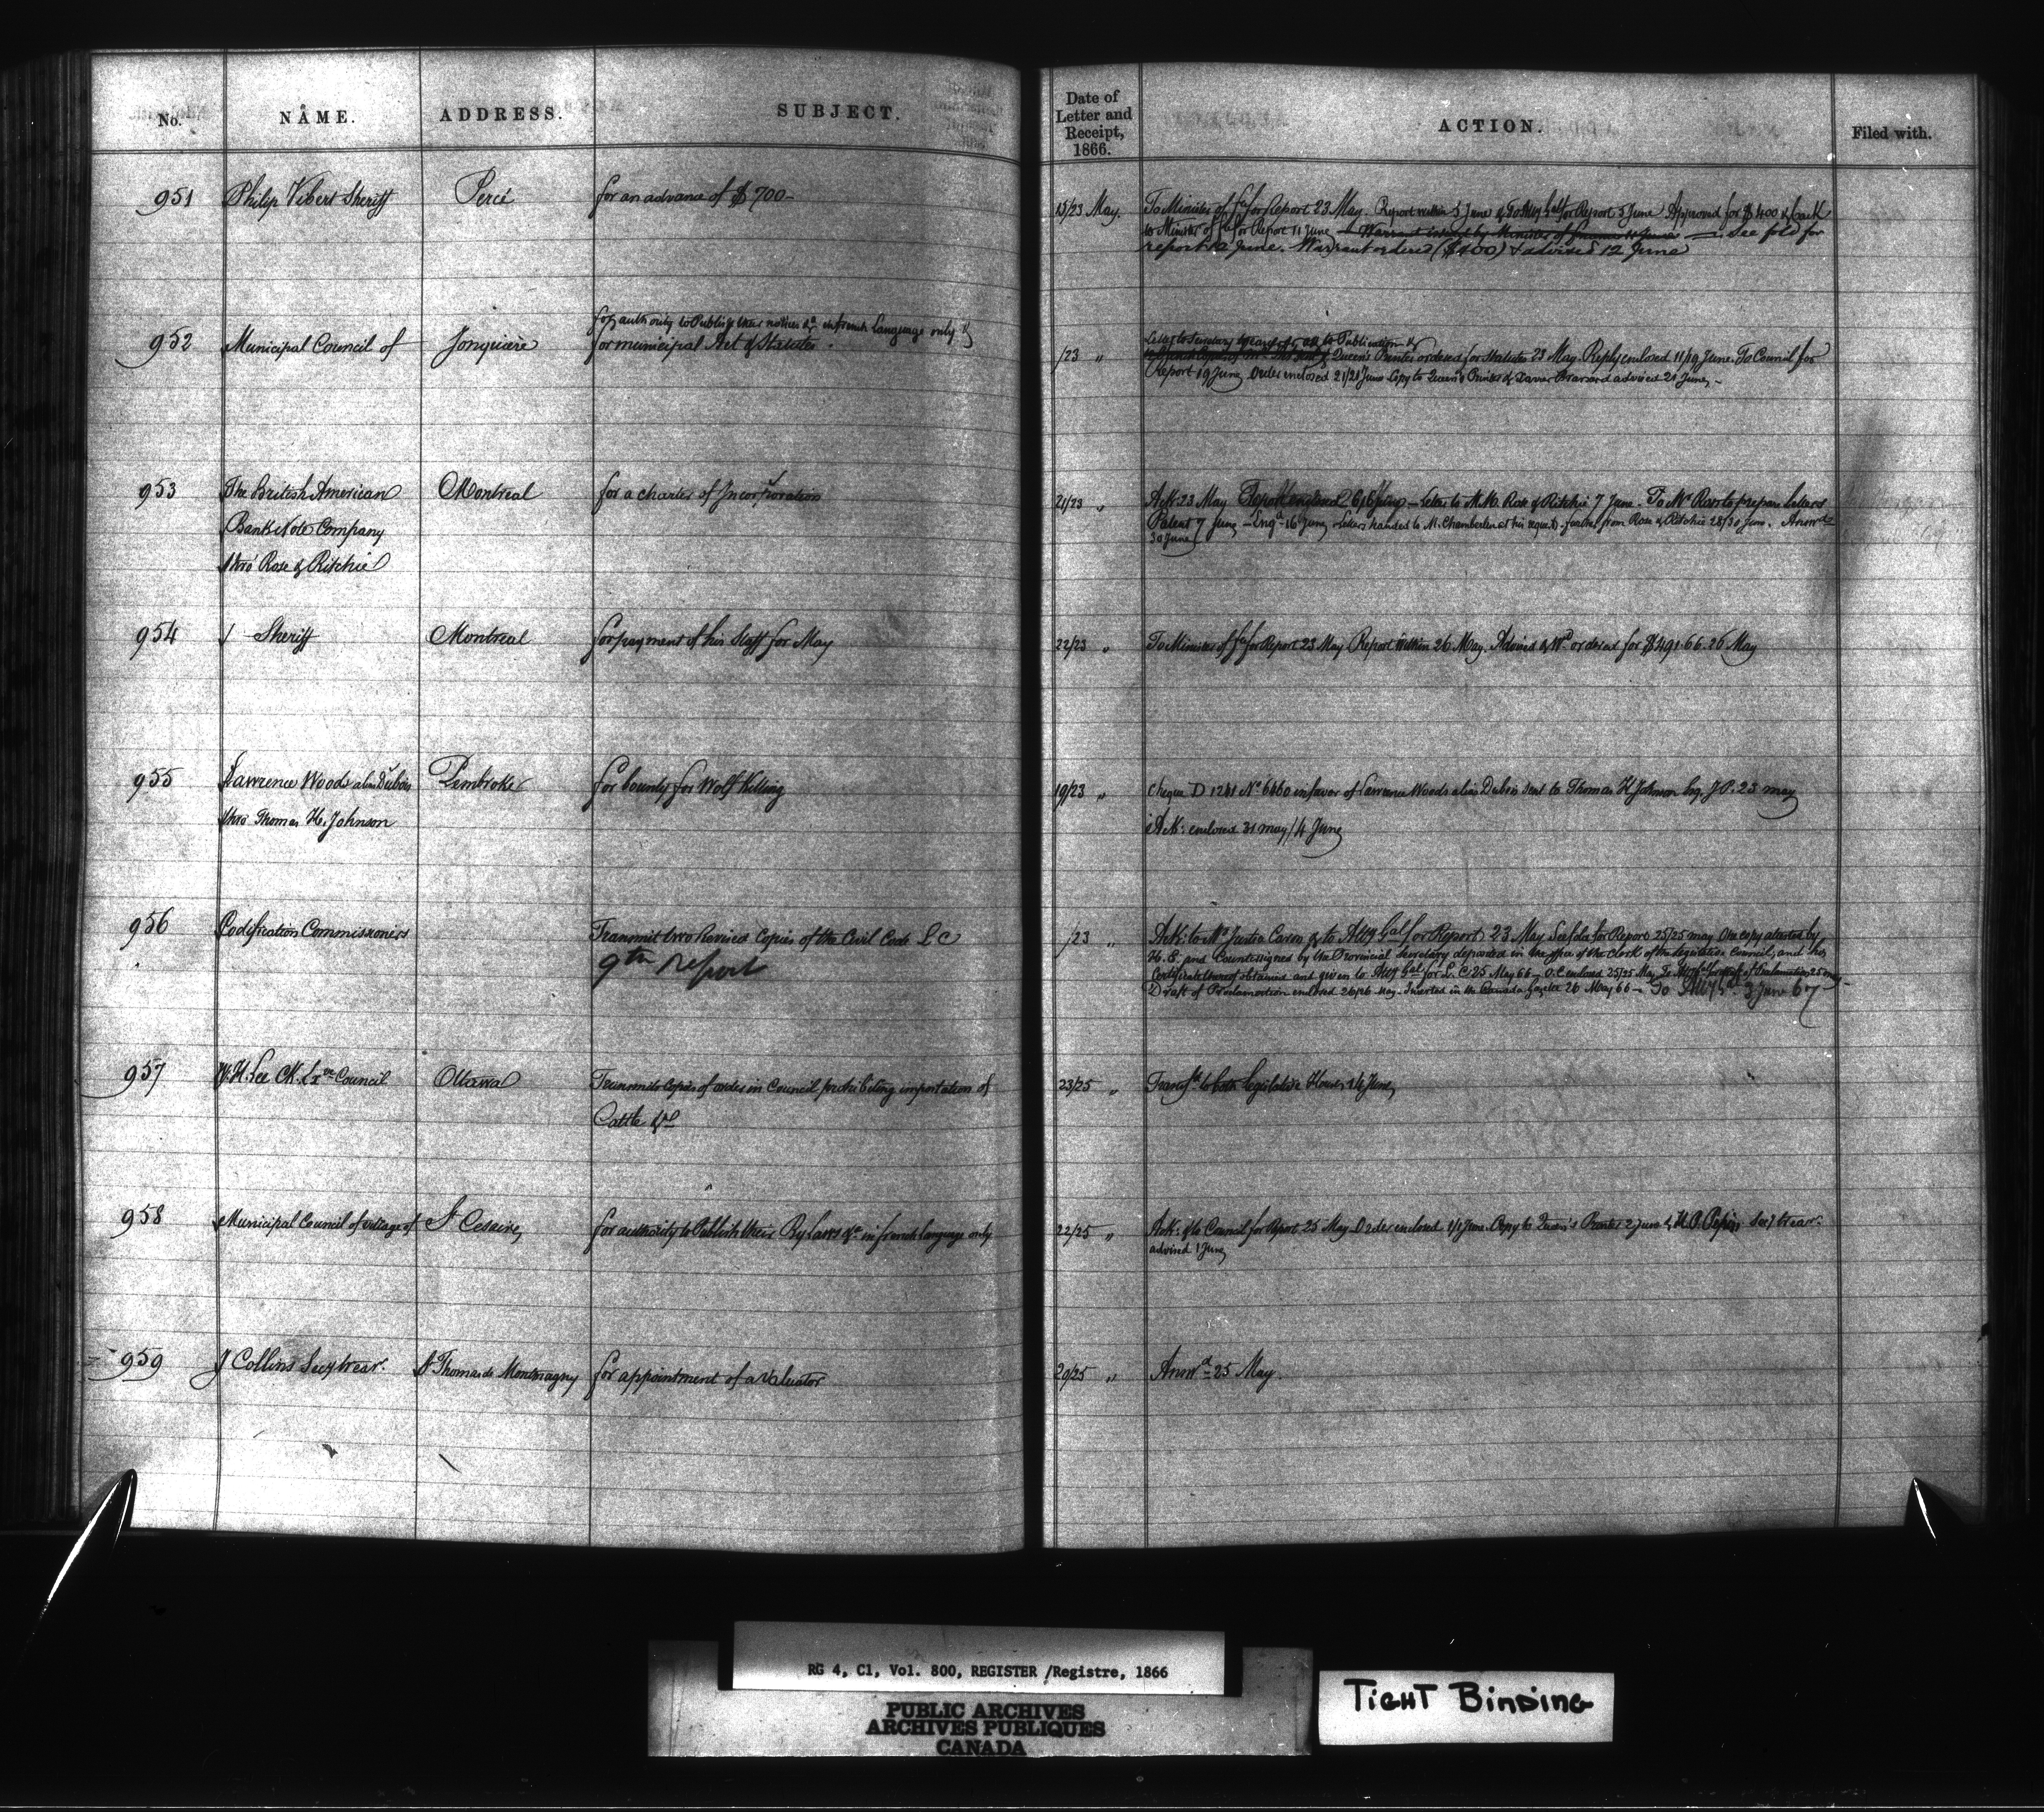 No. NAME. ADDRESS. SUBJECT.
Date of Letter and Receipt, 1866. ACTION. Filed with.
951 Philip Vibert Sheriff Percé for an advance of $700-
15/23 May. To Minister of Fce for Report 23 May. Report within 5 June & To Atty Gal for Report 5 June Approved for $400 & back
to Minister of Fce for Report 11 June — Warrant issued by Minister of Finance — See fold for
report 12 June. Warrant ordered ($400) & advised 12 June
952 Municipal Council of Jonquiere
for authority to Publish their notices &a in french Language only &
for municipal Act & Statutes.
/23 "
Letter to Secretary Treasurer as to Publication &
Queen's Printer ordered for Statutes 23 May. Reply enclosed 11/19 June. To Council for
Report 19 June Order enclosed 21/21 June Copy to Queen's Printer & advised 21 June -
953 The British American Montreal for a charter of Incorporation
Bank Note Company
thro' Rose & Ritchie
21/23 " Ack: 23 May Report enclosed 6/6 June — Letter to M.M. Rose & Ritchie 7 June. To Mr to prepare Letters
Patent 7 June — Engd 16 June Letters handed to M. Chamberlen at his request. further from Rose & Ritchie 28/30 June. Answd
30 June
954 Sheriff Montreal for payment of his Staff for May
22/23 " To Minister of Fce for Report 23 May Report within 26 May. Advised & Wt ordered for $491.66. 26 May
955 Lawrence Woods alias Dubois Pembroke for bounty for Wolf Killing
thro Thomas H. Johnson
19/23 " Cheque D 1241 No 6460 in favor of Lawrence Woods alias Dubois sent to Thomas H Johnson Esq J.P. 23 may
Ack: enclosed 31 may/4 June
956 Codification Commissioners Transmit two Revised Copies of the Civil Code L C
9th report
/23 " Ack: to Mr Justice Caron & to Atty Gal for Report 23 May See fold for Report 25/25 may One copy attested by
H. E. and Countersigned by the Provincial Secretary deposited in the office of the Clerk of the Legislative Council, and his
Certificate thereof obtained and given to Atty Gal for L. C. 25 May 66 — O.C. enclosed 25/25 May To Atty Gal for draft of Proclamation 25 may -
Draft of Proclamation enclosed 26/26 May. Inserted in the Canada Gazette 26 May 66 — To Atty Gl 3 June 67
957 W. H. Lee Ck. Exve Council Ottawa Transmits Copies of order in Council prohibiting importation of
Cattle &c
23/25 " Transfd to both Legislative Houses 14 June
958 Municipal Council of village of St Cesaire for authority to Publish their By Laws &c in french language only
22/25 " Ack: & to Council for report 25 May Order enclosed 1/1 June. Copy to Queen's Printer 2 June & H. P. Pepin Secy trear.
advised 1 June
959 J Collins Secy trear. St Thomas de Montmagny for appointment of a valuator
20/25 " Answd 25 May.
RG 4, C1, Vol. 800, REGISTER /Registre, 1866
PUBLIC ARCHIVES
ARCHIVES PUBLIQUES
CANADA
TIGHT BINDING